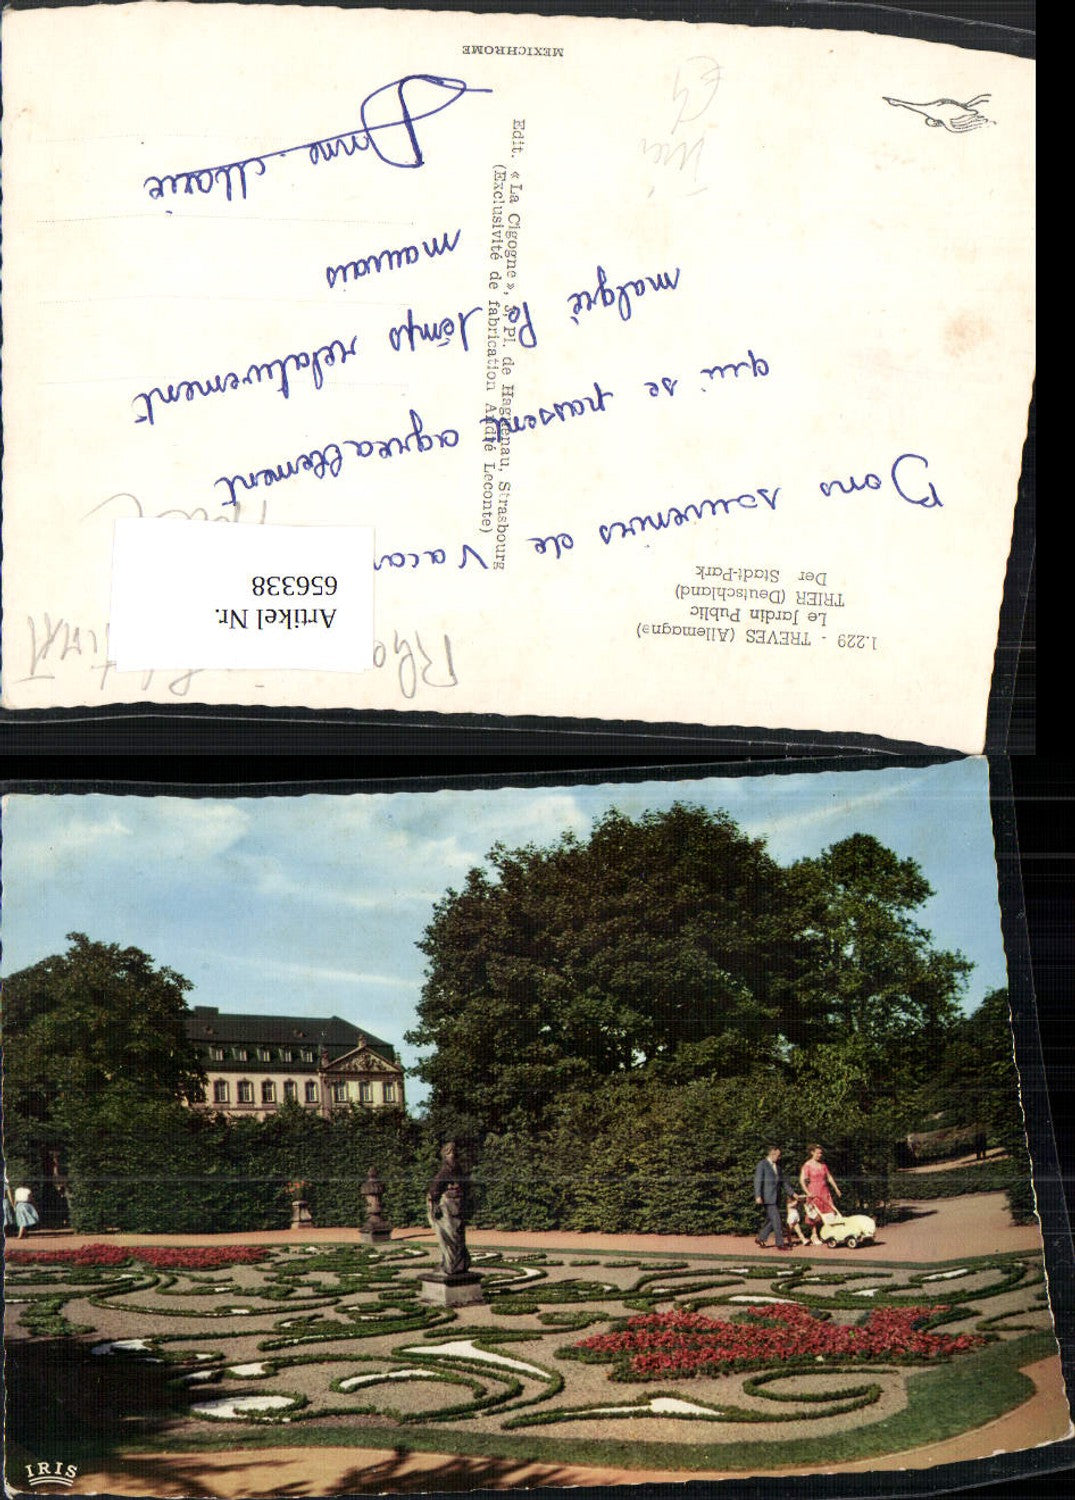 1.229 - TREVES (Allemagne)
Le Jardin Public
TRIER (Deutschland)
Der Stadt-Park
Bons souvenirs de Vacan
qui se passent agreablement
malgré le temps relativement
mauvais
Anne-Marie
Edit. « La Cigogne », 3, Pl. de Haguenau, Strasbourg
(Exclusivité de fabrication André Leconte)
MEXICHROME
Artikel Nr.
656338
Trier
IRIS